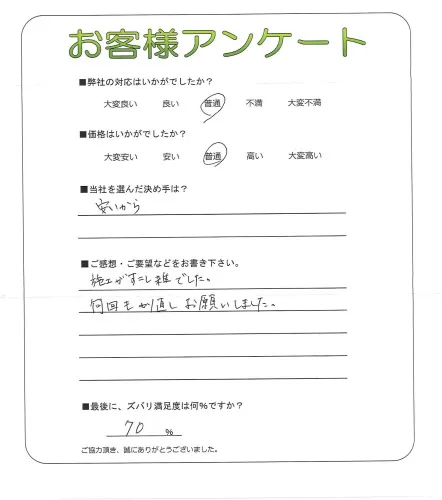 お客様アンケート
■弊社の対応はいかがでしたか?
大変良い 良い 普通 不満 大変不満
■価格はいかがでしたか?
大変安い 安い 普通 高い 大変高い
■当社を選んだ決め手は?
安いから
■ご感想・ご要望などをお書き下さい。
施工がすこし雑でした。
何回も 直しお願いしました。
■最後に、ズバリ満足度は何%ですか?
70 %
ご協力頂き、誠にありがとうございました。